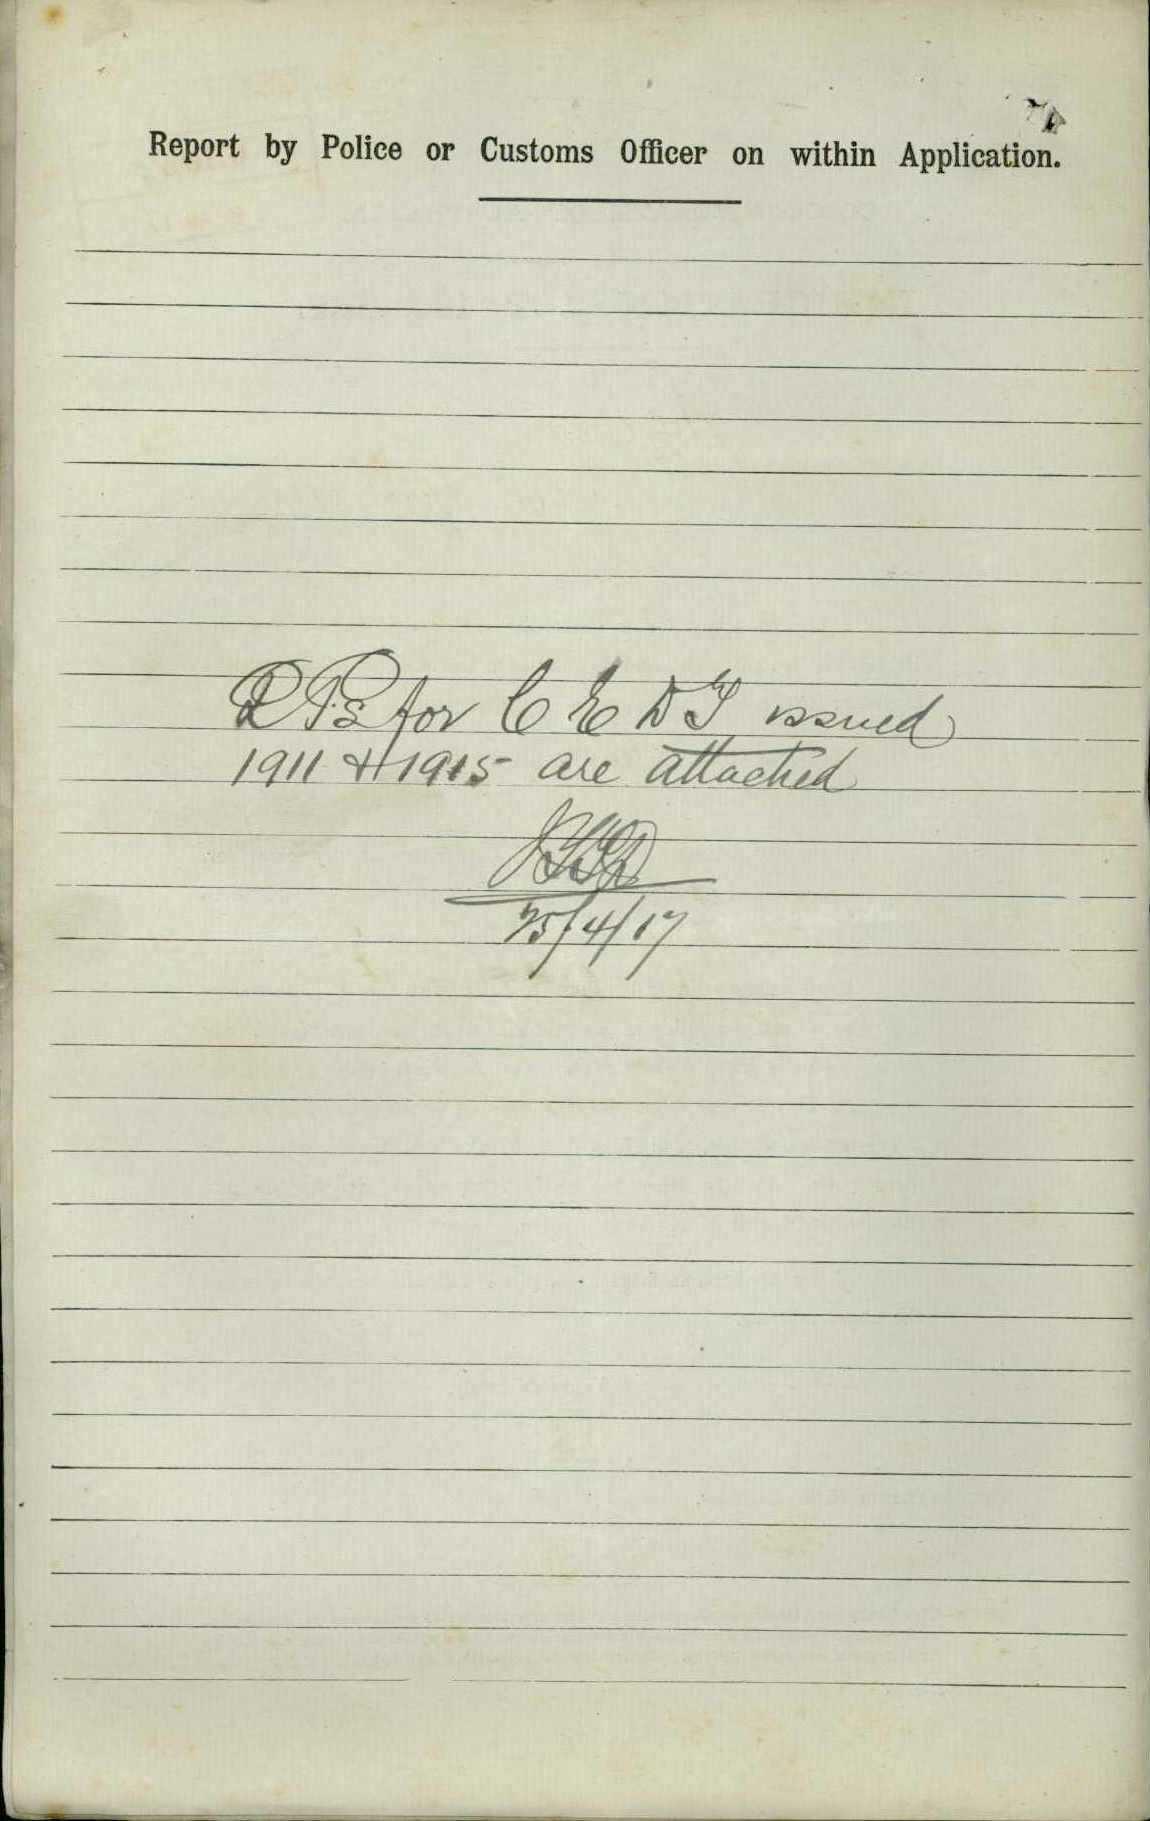 Report by Police or Customs Officer on within Application.
for C E D T issued
1911 & 1915 are attached
25/4/17